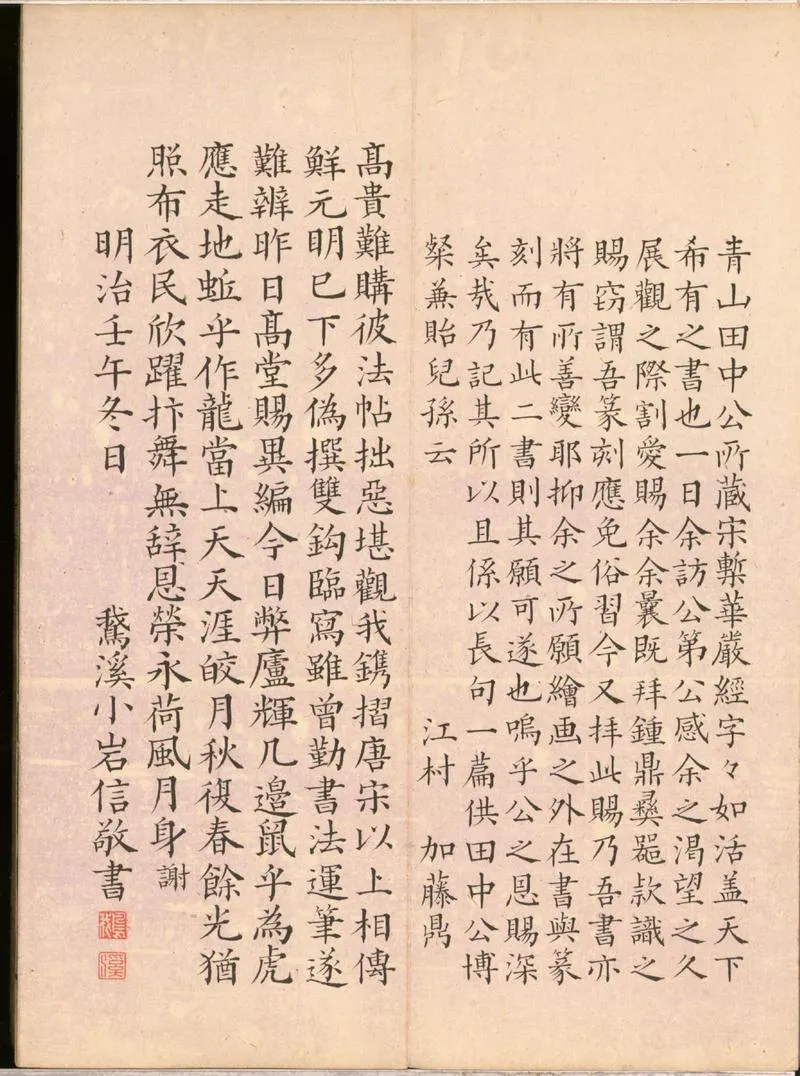 青山田中公所蔵宋槧華嚴經字々如活盖天下
希有之書也一日余訪公第公感余之渇望之久
展觀之際割愛賜余余曩既拜鍾鼎彝噐款識之
賜窃謂吾篆刻應免俗習今又拝此賜乃吾書亦
將有所善變耶抑余之所願繪画之外在書與篆
刻而有此二書則其願可遂也嗚乎公之恩賜深
矣哉乃記其所以且係以長句一篇供田中公博
粲兼貽兒孫云 江村 加藤鼎
髙貴難購彼法帖拙惡堪觀我鐫摺唐宋以上相傳
鮮元明已下多偽撰雙鈎臨寫雖曾勤書法運筆遂
難辨昨日髙堂賜異編今日弊廬輝几邊鼠乎為虎
應走地蚯乎作龍當上天天涯皎月秋復春餘光猶
照布衣民欣躍抃舞無辞恩榮永荷風月身謝
明治壬午冬日 鵞溪小岩信敬書
鵞
溪